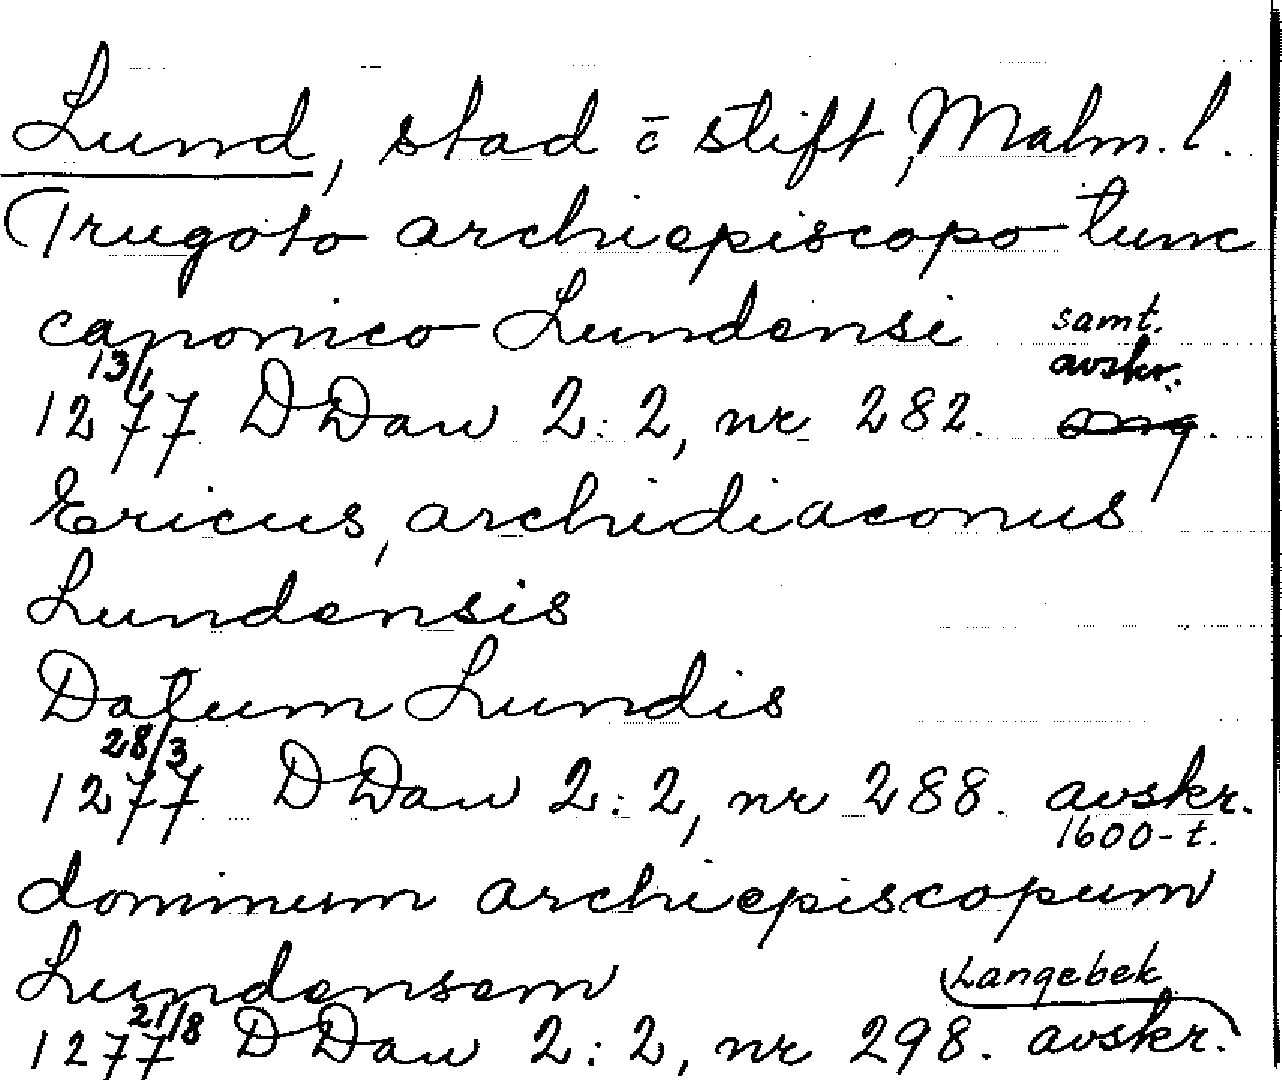 Lund, stad o stift, Malm. l.
Trugoto archiepiscopo tunc
canonico Lundensi samt.
avskr.
13/1
1277 DDan 2:2, nr 282.
Ericus, archidiaconus
Lundensis
Datum Lundis
28/3
1277 DDan 2:2, nr 288. avskr.
1600-t.
dominum archiepiscopum
Lundensem Langebek
21/8
1277 DDan 2:2, nr 298. avskr.